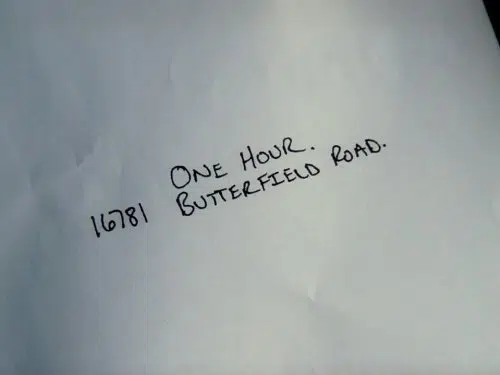 ONE HOUR.
16781 BUTTERFIELD ROAD.